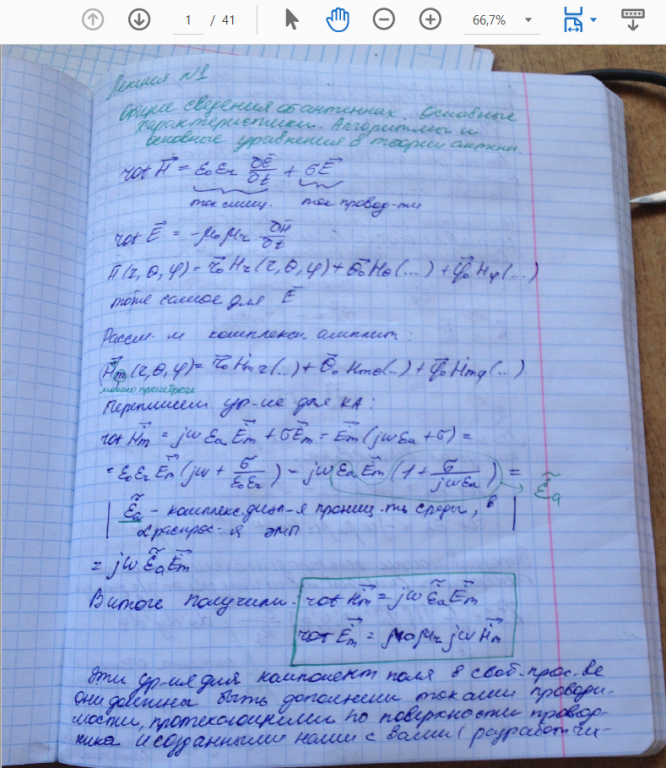 1 / 41
66,7%
Лекция N1
Общие сведения об антеннах. Основные
характеристики. Алгоритмы и
основные уравнения в теории антенн.
rot H⃗ = ε₀εr ∂E⃗/∂t + σE⃗
ток смещ. ток провод-ти
rot E⃗ = -μ₀μr ∂H⃗/∂t
H⃗(r, θ, φ) = r⃗₀Hr(r, θ, φ) + θ⃗₀Hθ(...) + φ⃗₀Hφ(...)
тоже самое для E⃗
Рассм-м комплексн. амплит:
H⃗m(r, θ, φ) = r⃗₀Ḣmr(...) + θ⃗₀Ḣmθ(..) + φ⃗₀Ḣmφ(...)
можно
Перепишем ур-ие для КА:
rot H⃗m = jωεaE⃗m + σE⃗m = E⃗m(jωεa + σ) =
= ε₀εrE⃗m(jω + σ/ε₀εr) = jωεaE⃗m(1 + σ/jωεa) =
→ ε̃a
| ε̃a - комплекс. диэл-я прониц-ть среды, в |
| распрос-я ЭМП
= jωε̃aE⃗m
В итоге получили: rot H⃗m = jωε̃aE⃗m
rot E⃗m = μ₀μr jωH⃗m
Эти ур-ия для компонент поля в своб. прос-ве
они должны быть дополнены токами проводи-
мости, протекающими по поверхности провод-
ника и созданными нами с вами (разработчи-